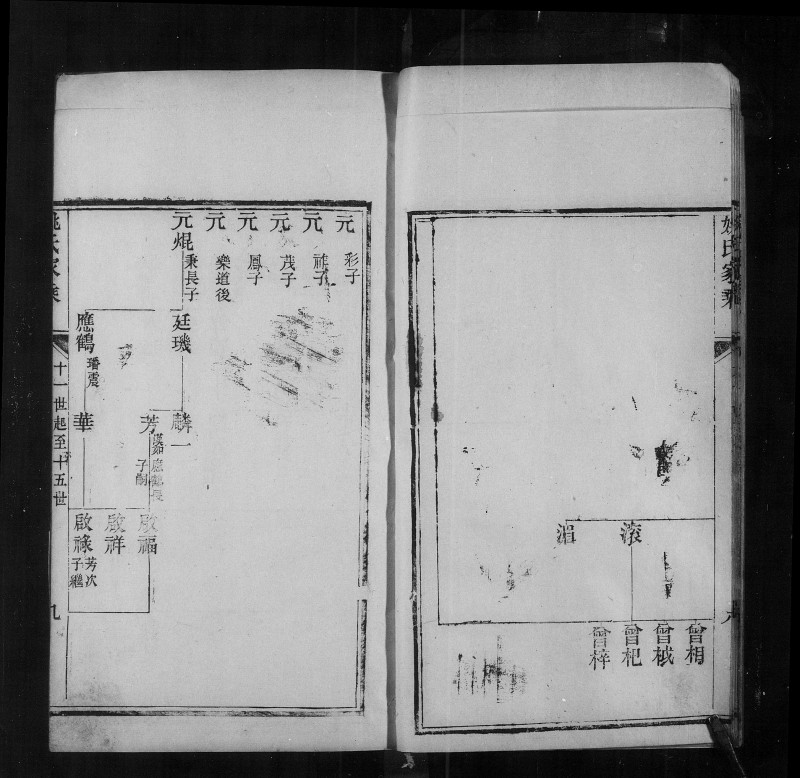 姚氏家乘
滚
湄
曾相
曾栻
曾杞
曾梓
元 彩子
元 祚子
元 茂子
元 鳳子
元 樂道後
元焜 秉長子
廷璣
麟一
芳 應鶴長子嗣
啟福
啟祥
啟祿 芳次子繼
應鶴 璠震
華
姚氏家乘 十一世起至十五世 九